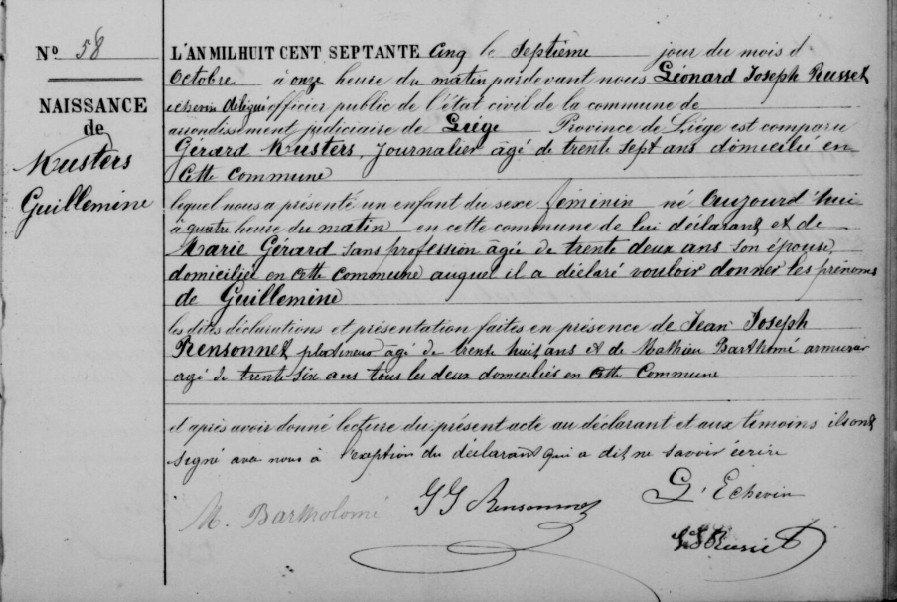 N° 58
NAISSANCE
de
Musters
Guillemine
L'AN MIL HUIT CENT SEPTANTE Cinq le Septième jour du mois d
Octobre à onze heure du matin pardevant nous Léonard Joseph Russet
echevin délégué officier public de l'état civil de la commune de
arrondissement judiciaire de Liége Province de Liége est comparu
Gérard Musters, Journalier âgé de trente sept ans domicilié en
Cette commune
lequel nous a présenté un enfant du sexe féminin né Aujourd'hui
à quatre heure du matin en cette commune de lui déclarant et de
Marie Gérard sans profession âgée de trente deux ans son épouse,
domiciliée en cette commune auquel il a déclaré vouloir donner les prénoms
de Guillemine
les dites déclarations et présentation faites en présence de Jean Joseph
Rensonnet platineur âgé de trente huit ans et de Mathieu Barthomé armurier
agé de trente six ans tous les deux domiciliés en cette Commune
d'après avoir donné lecture du présent acte au déclarant et aux témoins ils ont
signé avec nous à l'exeption du déclarant qui a dit ne savoir écrire
M. Bartholomé JJ Rensonnet L'Echevin
LJ Russet